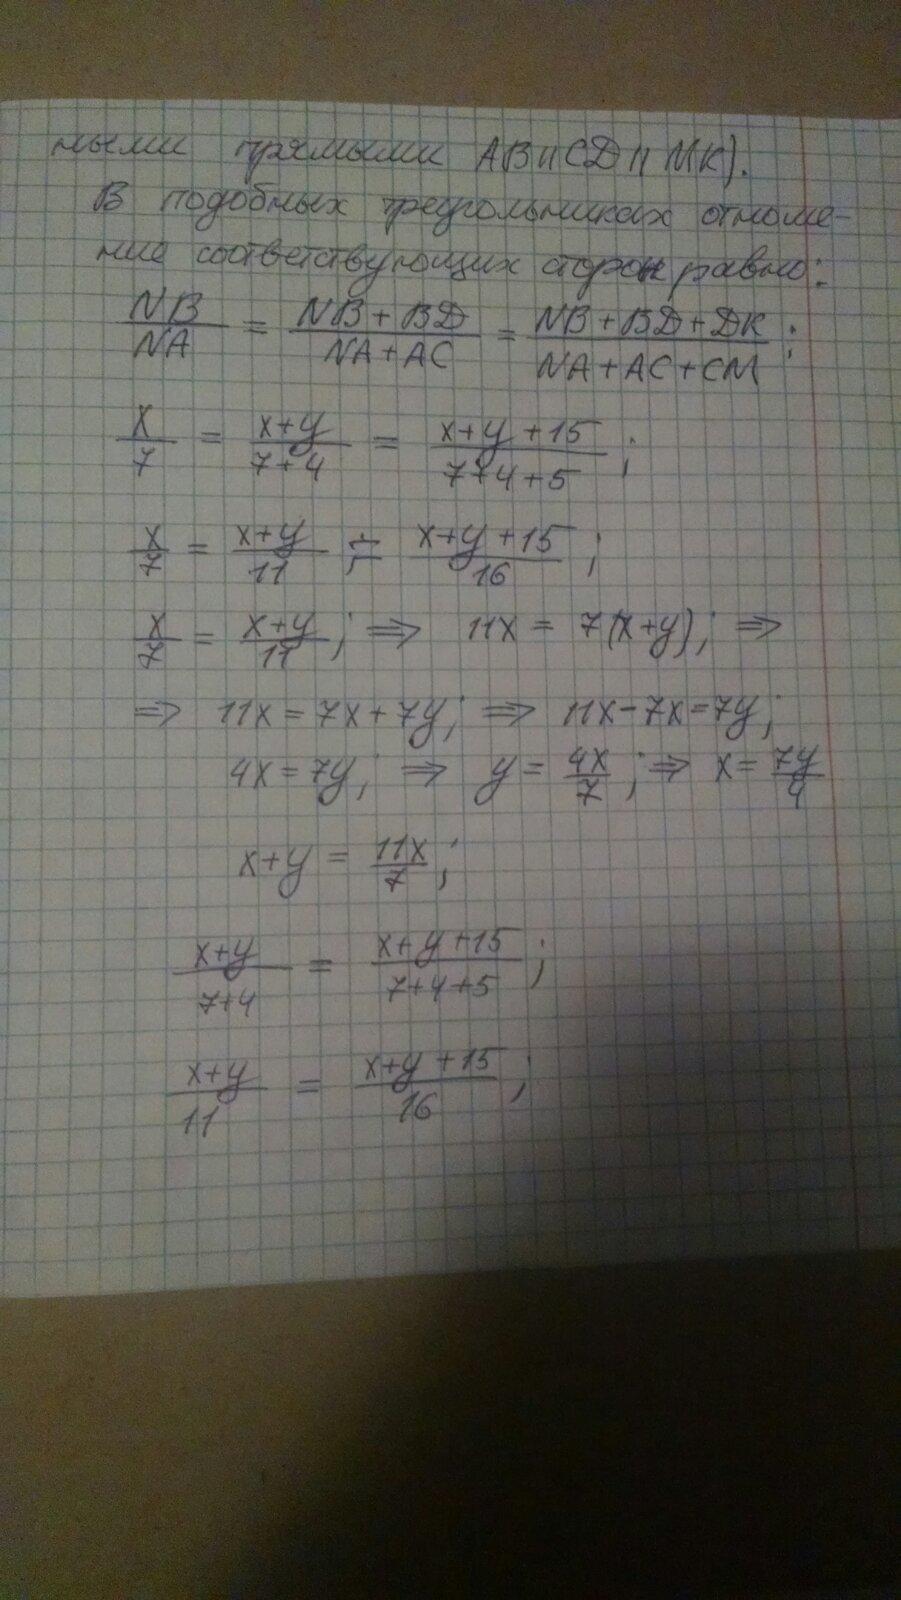 ными прямыми AB II CD II MK).
В подобных треугольниках отноше-
ние соответствующих сторон равно:
NB/NA = (NB + BD)/(NA + AC) = (NB + BD + DK)/(NA + AC + CM);
x/7 = (x+y)/(7+4) = (x+y+15)/(7+4+5);
x/7 = (x+y)/11 = (x+y+15)/16;
x/7 = (x+y)/11; => 11x = 7(x+y); =>
=> 11x = 7x + 7y; => 11x - 7x = 7y;
4x = 7y; => y = 4x/7; => x = 7y/4
x+y = 11x/7;
(x+y)/(7+4) = (x+y+15)/(7+4+5);
(x+y)/11 = (x+y+15)/16;